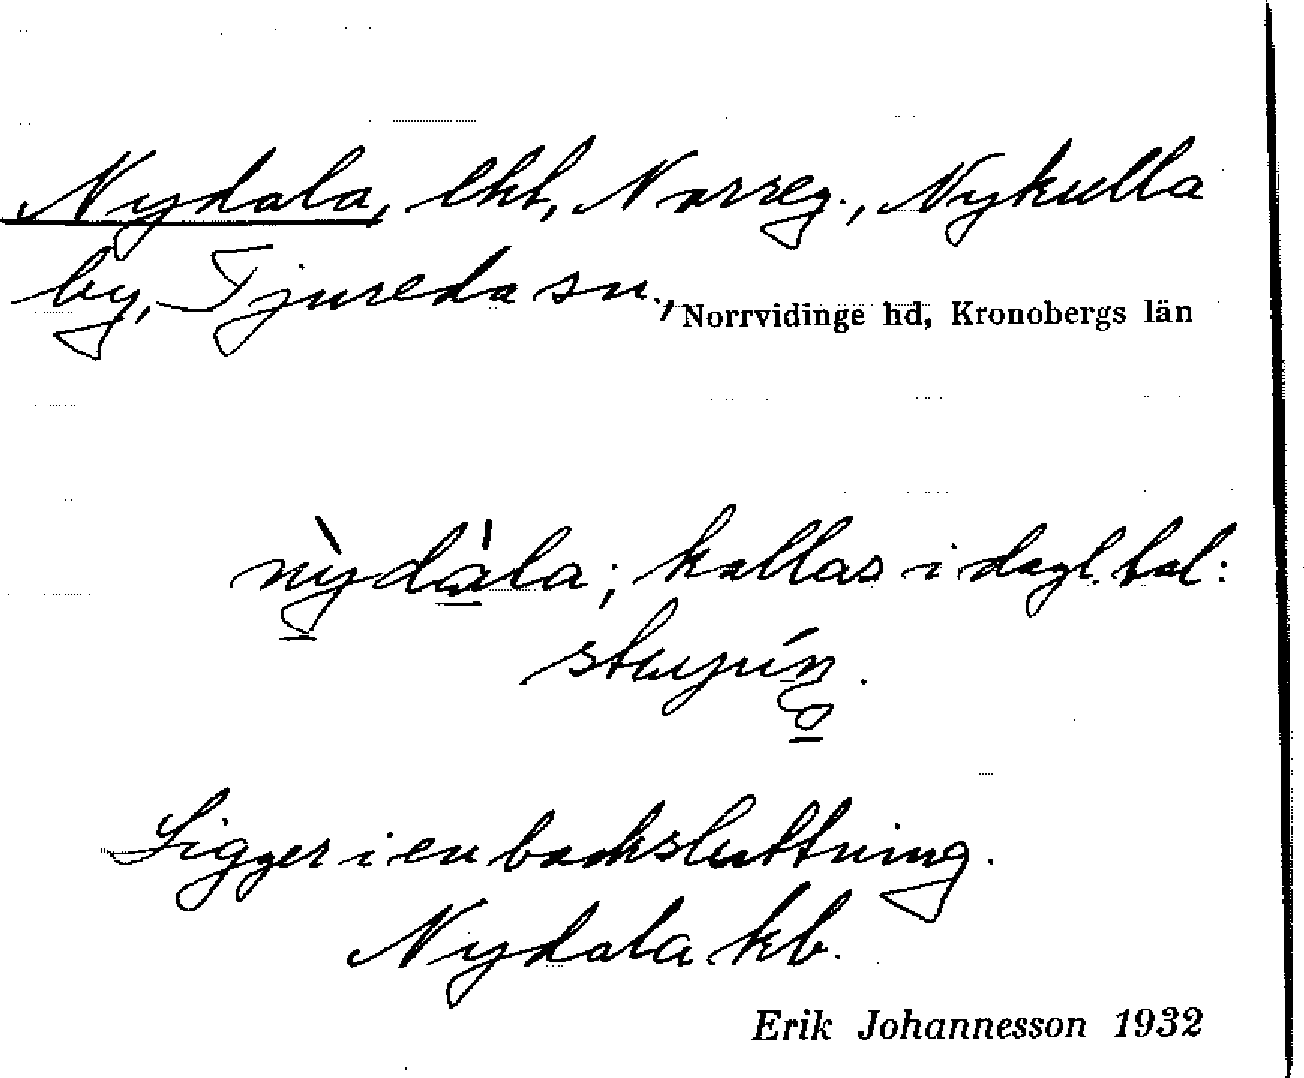 Nydala, lht, Norreg., Nykulla
by, Tjureda sn., Norrvidinge hd, Kronobergs län
nỳdàla; kallas i dagl. tal:
Ligger i en backsluttning.
Nydala kb.
Erik Johannesson 1932